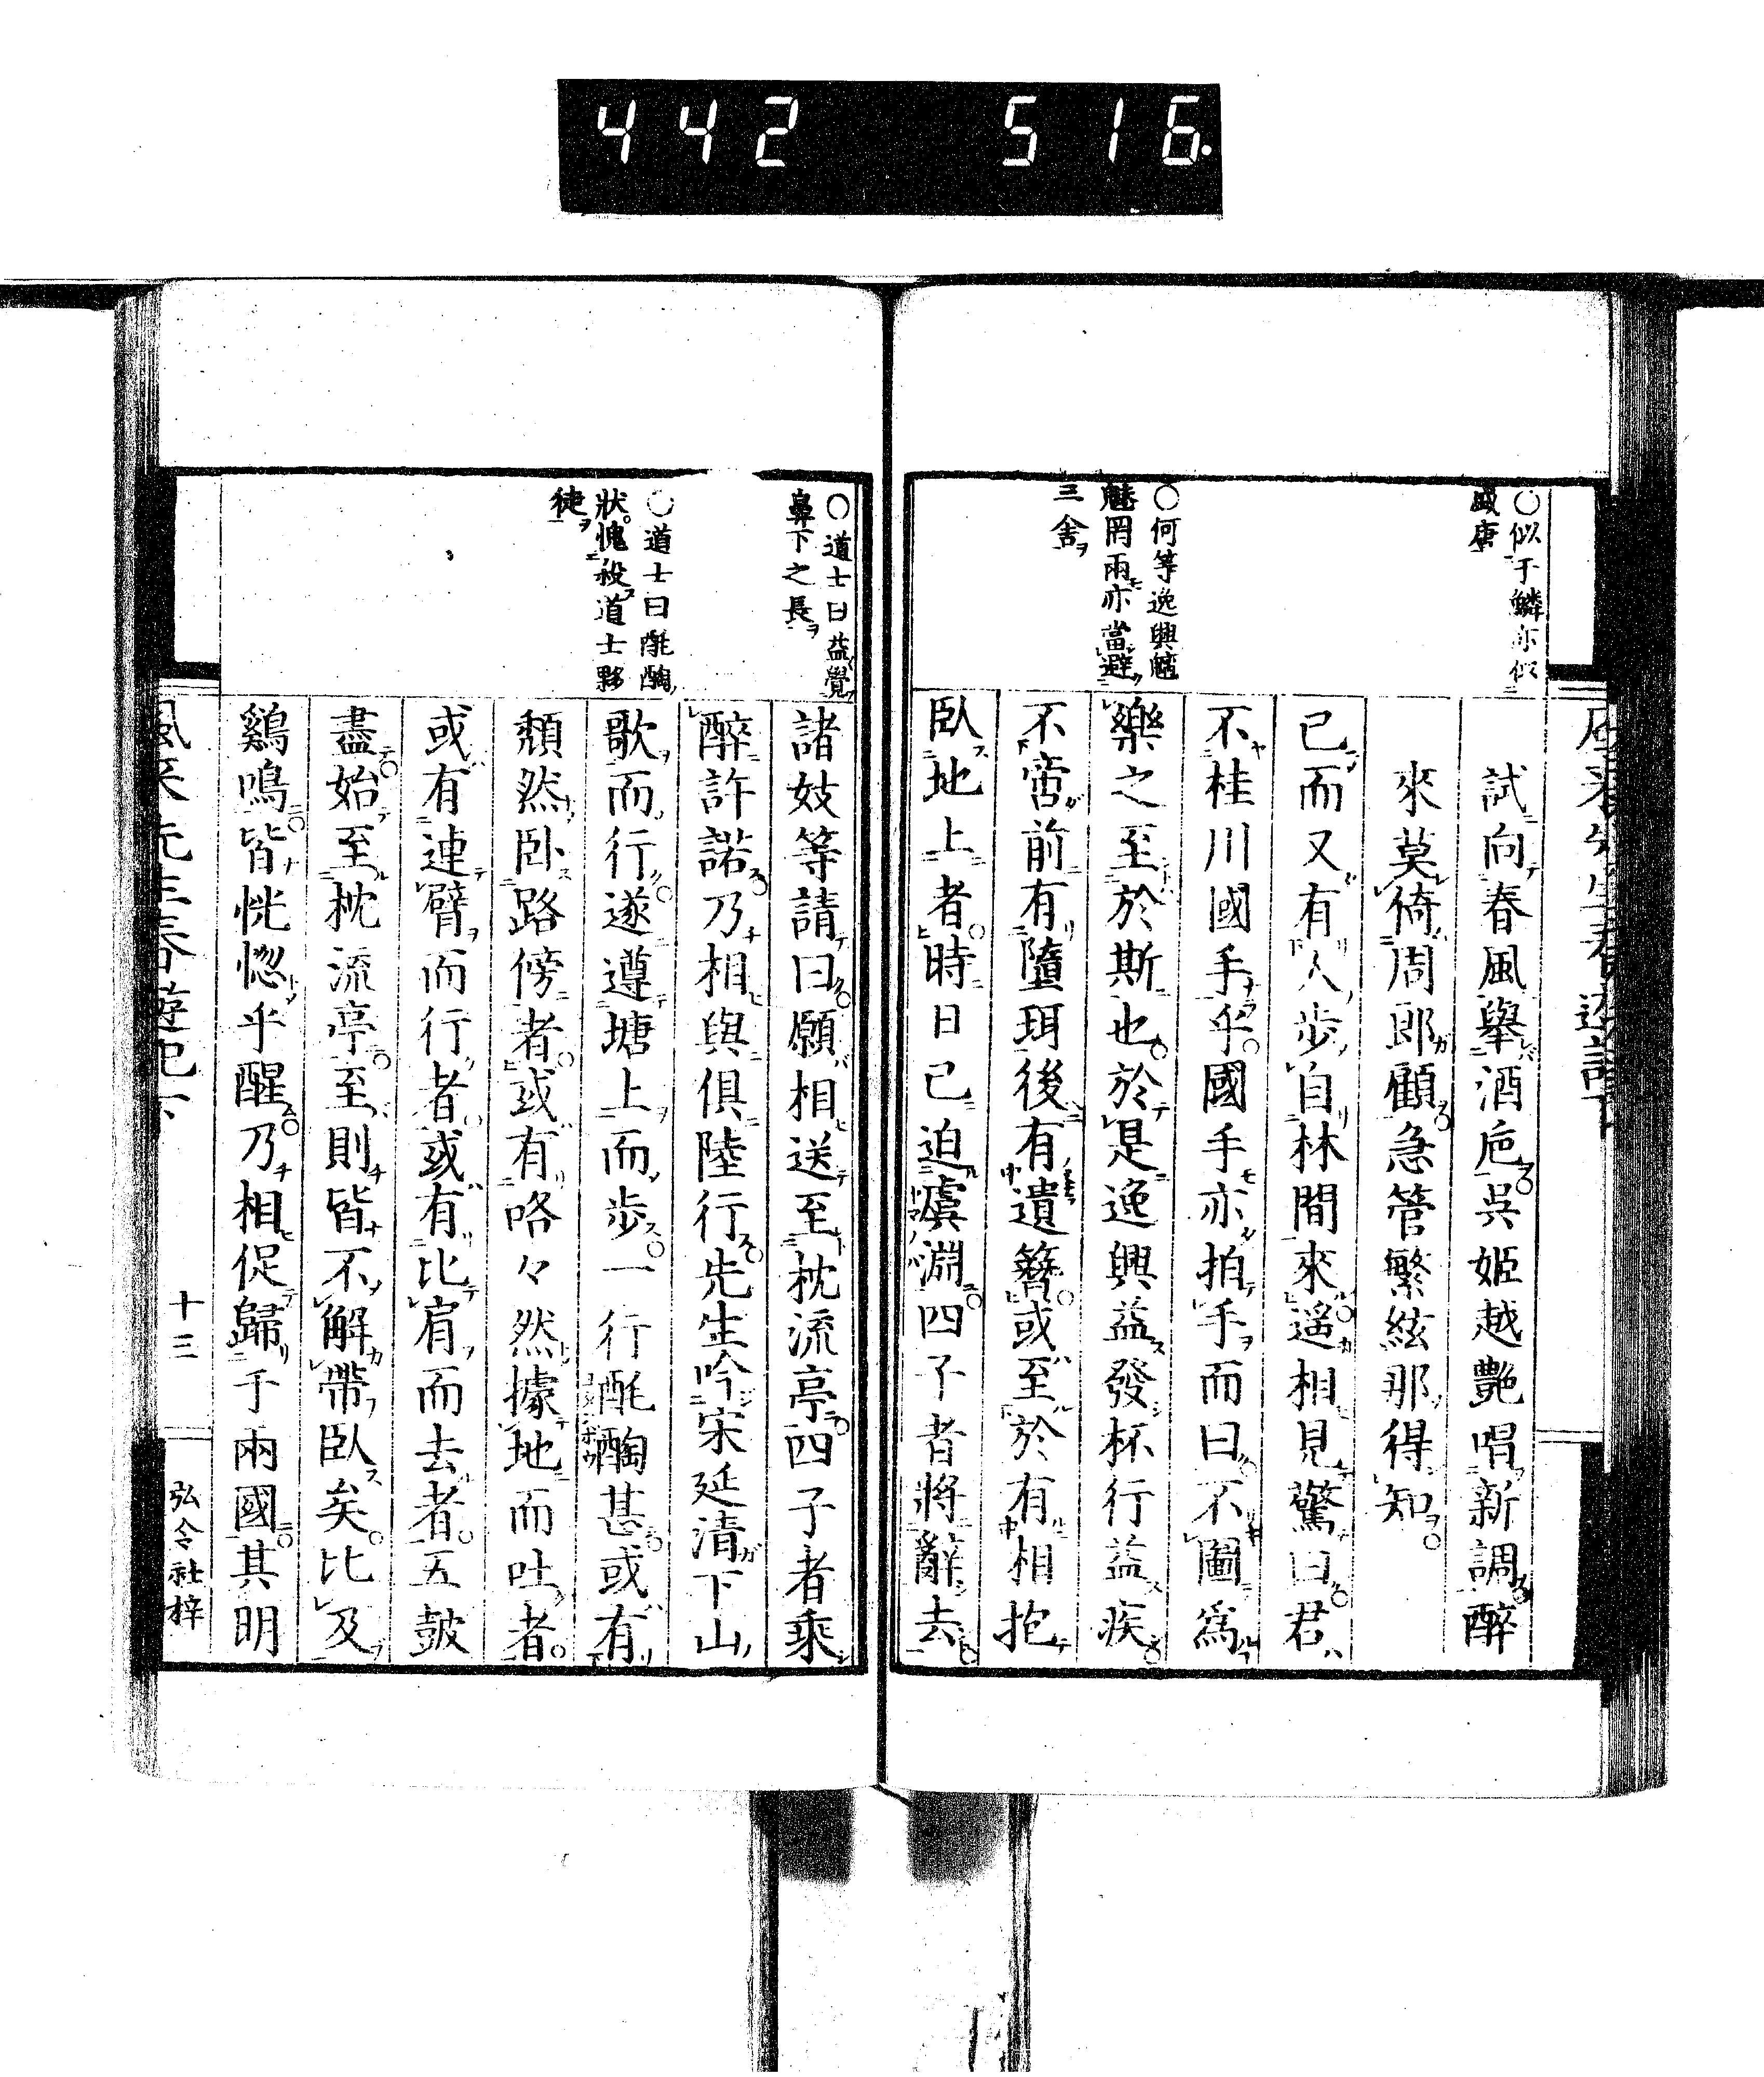 442 516.
○似于鱗亦似
盛唐
○何等逸興魑
魅罔兩亦當避
三舍
試向春風擧酒巵呉姬越艷唱新調醉
來莫倚周郎顧急管繁絃那得知
已而又有人歩自林間來遥相見驚曰君
不桂川國手乎國手亦拍手而曰不圖爲
樂之至於斯也於是逸興益發杯行益疾
不啻前有墮珥後有遺簪或至於有相抱
臥地上者時日已迫虞淵四子者將辭去
○道士曰益覺
鼻下之長
○道士曰酕醄
狀愧殺道士夥
徒
諸妓等請曰願相送至枕流亭四子者乘
醉許諾乃相與俱陸行先生吟宋延清下山
歌而行遂遵塘上而歩一行酕醄甚或有
頽然臥路傍者或有咯々然據地而吐者
或有連臂而行者或有比肩而去者五皷
盡始至枕流亭至則皆不解帶臥矣比及
鷄鳴皆恍惚乎醒乃相促歸于兩國其明
風来先生春遊記下
十三
弘令社梓